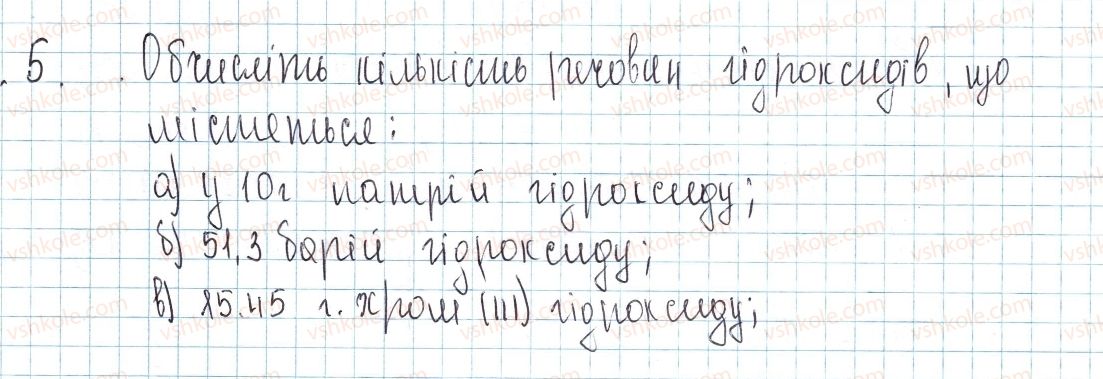 5. Обчисліть кількість речовин гідроксидів, що
міститься:
а) у 10 г натрій гідроксиду;
б) 51,3 барій гідроксиду;
в) 15.45 г. хром (III) гідроксиду;